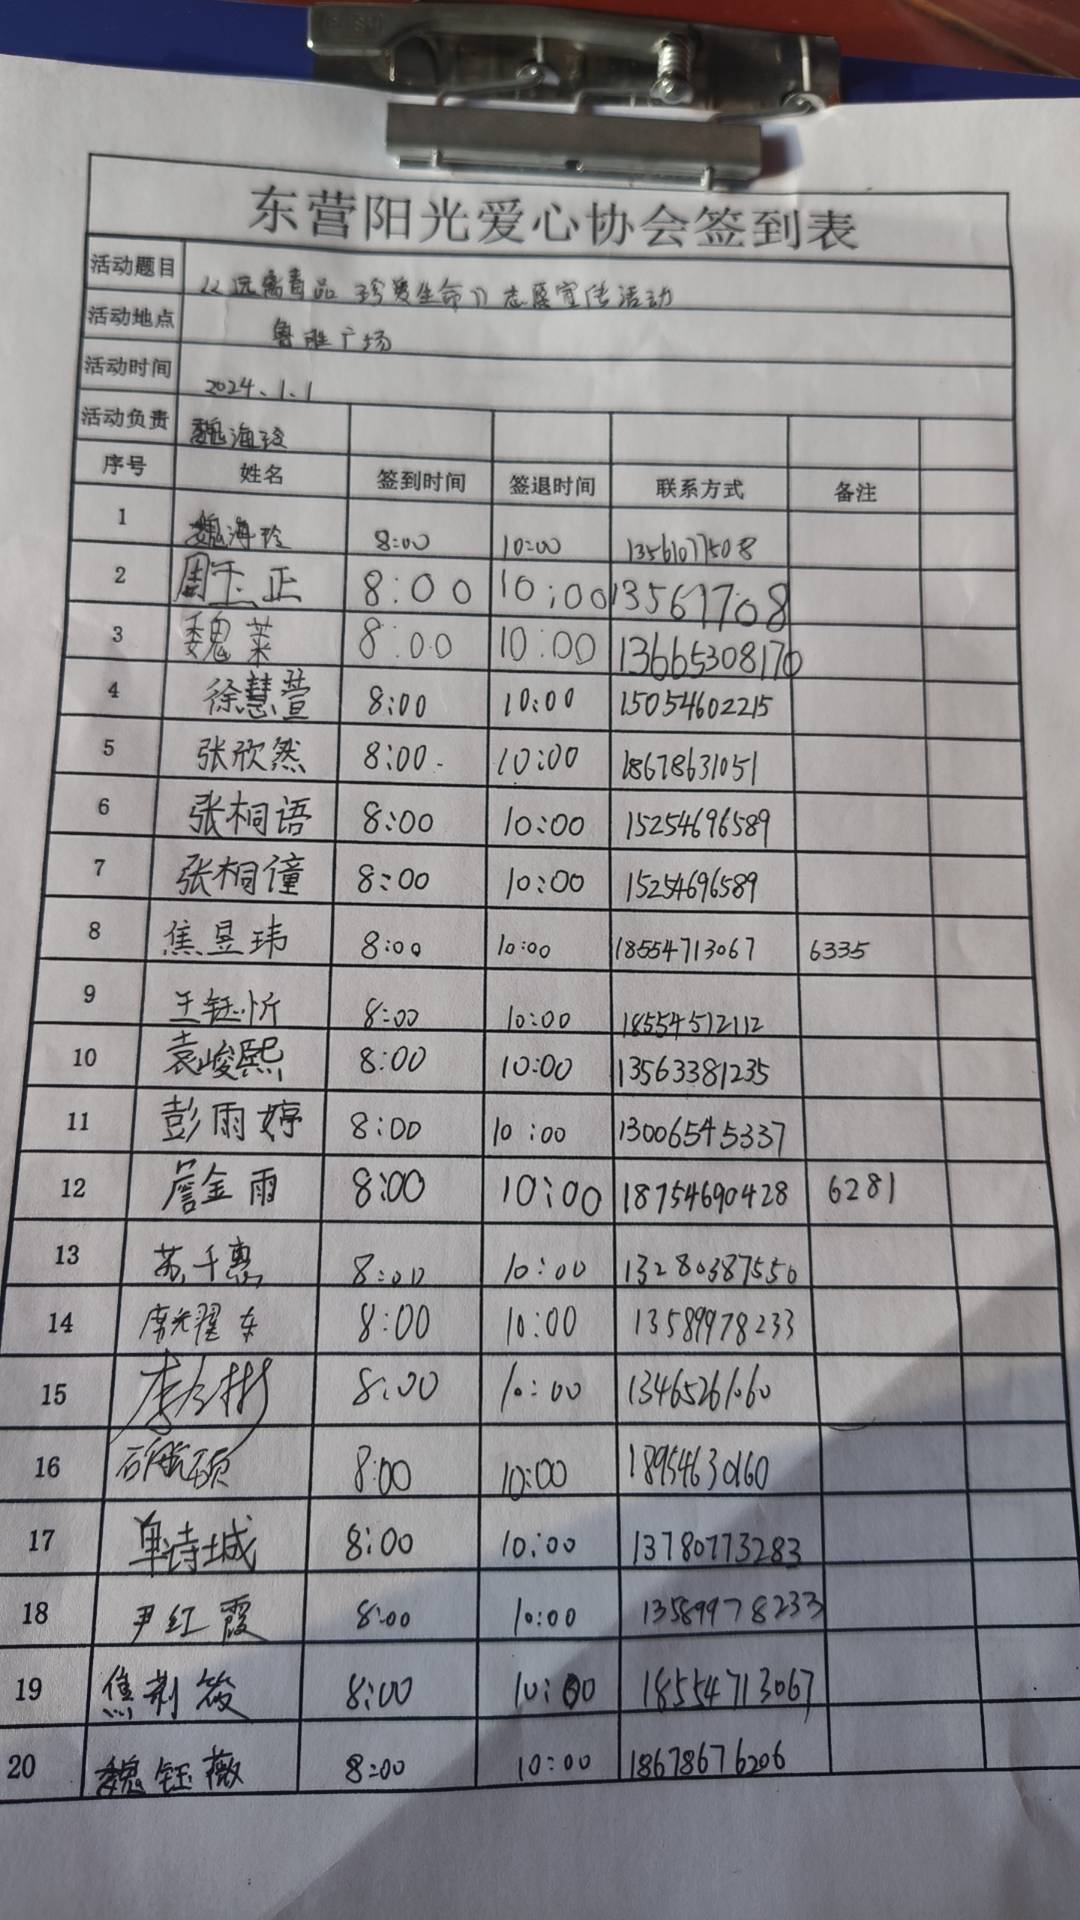 东营阳光爱心协会签到表
活动题目 《远离毒品 珍爱生命》志愿宣传活动
活动地点 鲁胜广场
活动时间 2024.1.1
活动负责 魏海玲
序号 姓名 签到时间 签退时间 联系方式 备注
1 魏海玲 8:00 10:00 13561077508
2 周玉正 8:00 10:00 13561708
3 魏莱 8:00 10:00 13665308170
4 徐慧萱 8:00 10:00 15054602215
5 张欣然 8:00 10:00 18678631051
6 张桐语 8:00 10:00 15254696589
7 张桐僮 8:00 10:00 15254696589
8 焦昱玮 8:00 10:00 18554713067 6335
9 王钰忻 8:00 10:00 18554512112
10 袁峻熙 8:00 10:00 13563381235
11 彭雨婷 8:00 10:00 13006545337
12 詹金雨 8:00 10:00 18754690428 6281
13 苏千惠 8:00 10:00 13280387550
14 8:00 10:00 13589978233
15 8:00 10:00 13465261060
16 8:00 10:00 18954630160
17 单诗城 8:00 10:00 13780773283
18 尹红霞 8:00 10:00 13589978233
19 焦荆筱 8:00 10:00 18554713067
20 魏钰薇 8:00 10:00 18678676206